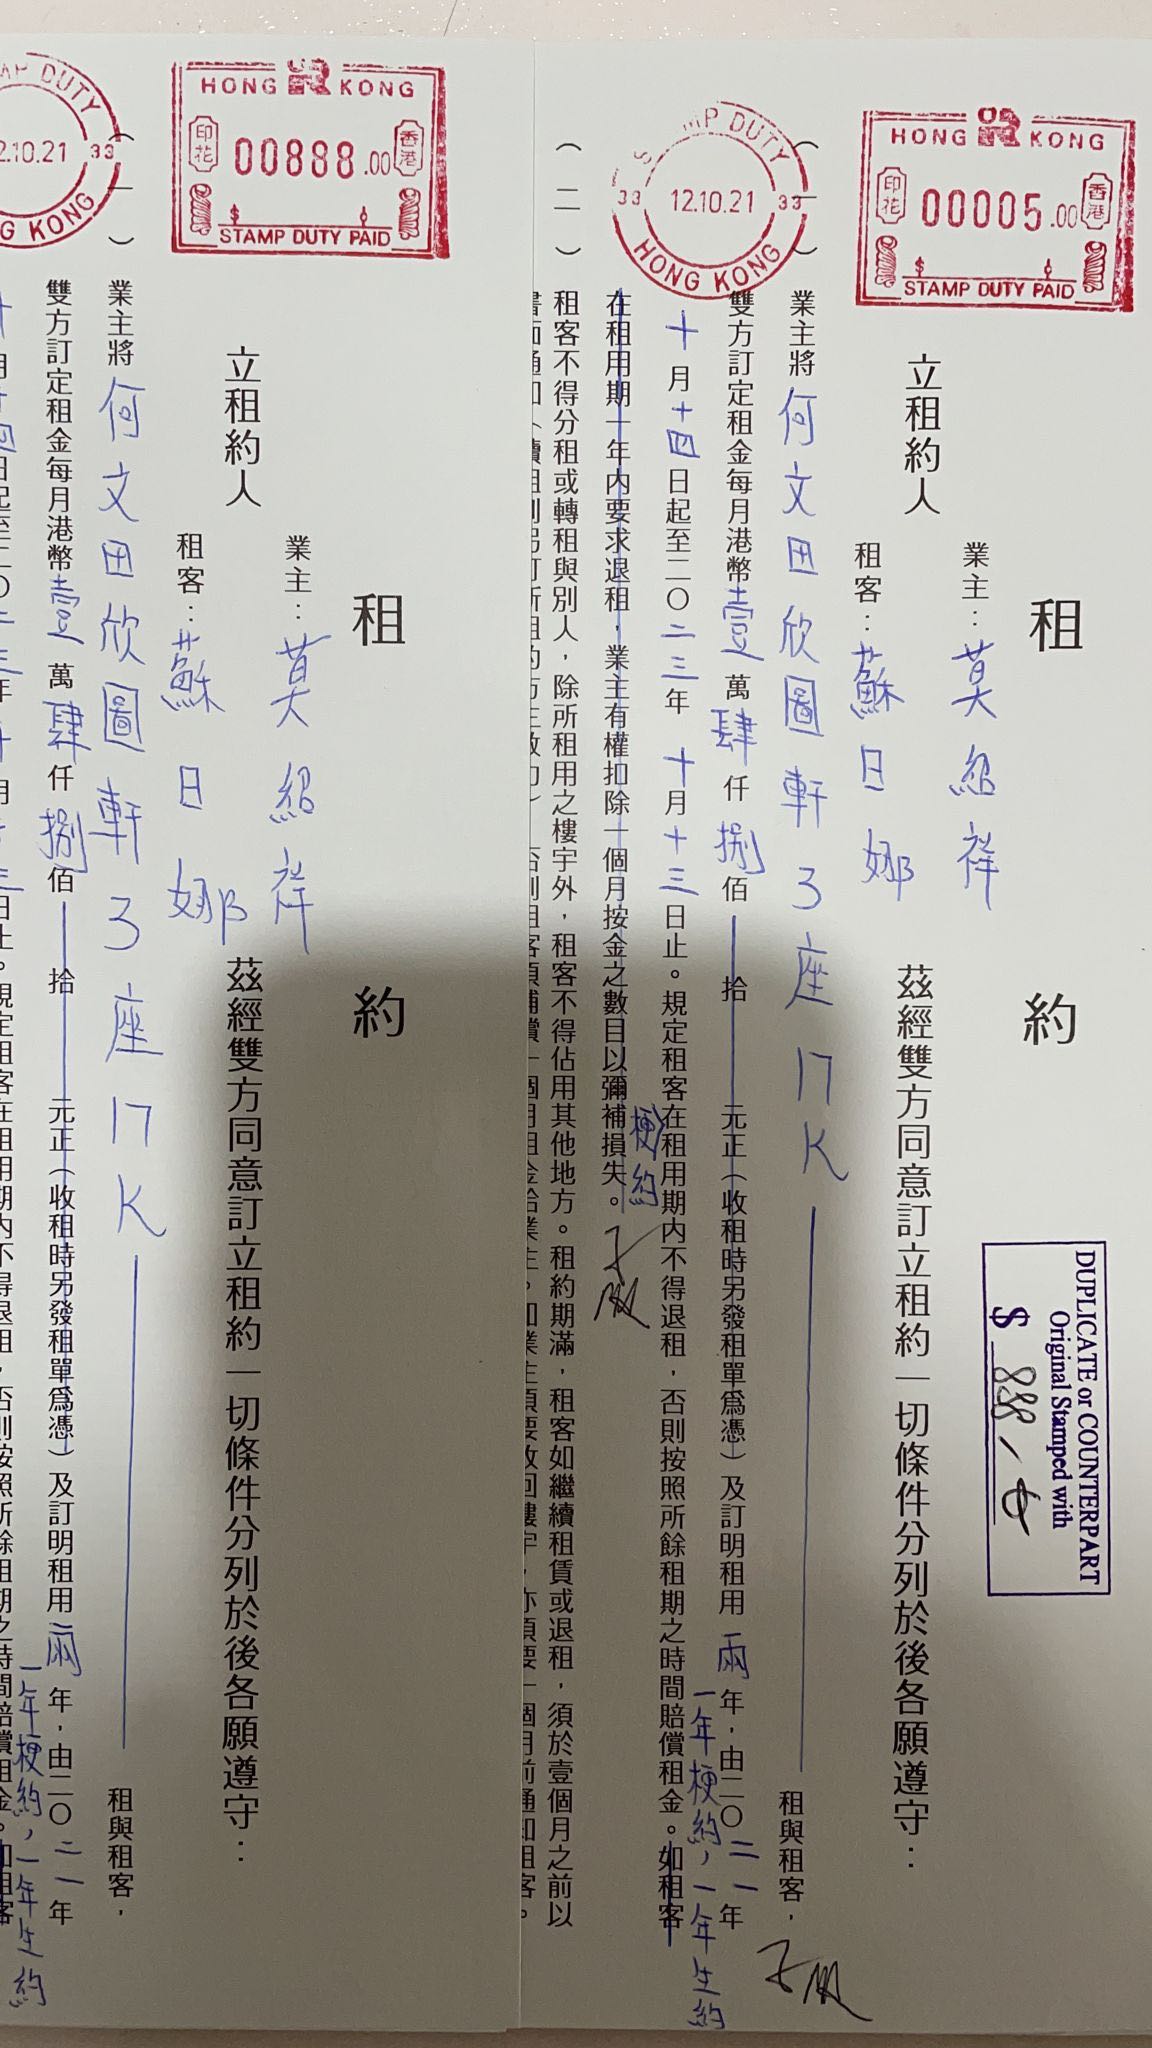 STAMP DUTY
12.10.21
33
HONG KONG
HONG KONG
印花
00888.00
香港
STAMP DUTY PAID
租約
業主：莫紹祥
立租約人
茲經雙方同意訂立租約一切條件分列於後各願遵守：
租客：蘇日娜
(一)
業主將何文田欣圖軒3座17K
租與租客，
雙方訂定租金每月港幣壹萬肆仟捌佰拾元正(收租時另發租單爲憑)及訂明租用兩年，由二〇二一年
一年梗約，一年生約
十月十四日起至二〇二三年十月十三日止。規定租客在租用期內不得退租，否則按照所餘租期之時間賠償租金。如租客
STAMP DUTY
33 12.10.21 33
HONG KONG
HONG KONG
印花
00005.00
香港
STAMP DUTY PAID
DUPLICATE or COUNTERPART
Original Stamped with
$ 888/-
租約
業主：莫紹祥
立租約人
茲經雙方同意訂立租約一切條件分列於後各願遵守：
租客：蘇日娜
(一)
業主將何文田欣圖軒3座17K
租與租客，
雙方訂定租金每月港幣壹萬肆仟捌佰拾元正(收租時另發租單爲憑)及訂明租用兩年，由二〇二一年
一年梗約，一年生約
十月十四日起至二〇二三年十月十三日止。規定租客在租用期內不得退租，否則按照所餘租期之時間賠償租金。如租客
梗約
在租用期一年內要求退租，業主有權扣除一個月按金之數目以彌補損失。
(二)
租客不得分租或轉租與別人，除所租用之樓宇外，租客不得佔用其他地方。租約期滿，租客如繼續租賃或退租，須於壹個月之前以